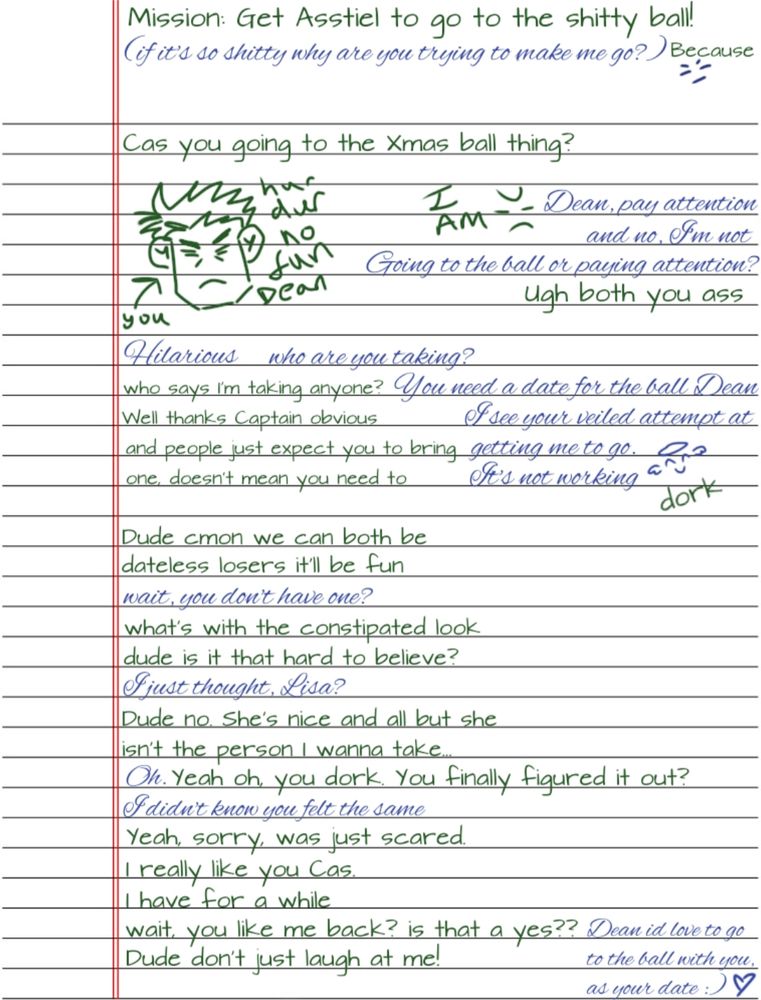 Mission: Get Asstiel to go to the shitty ball!
(if it's so shitty why are you trying to make me go?) Because
Cas you going to the Xmas ball thing?
hur
dur
no
fun
Dean
you
I
AM
Dean, pay attention
and no, I'm not
Going to the ball or paying attention?
Ugh both you ass
Hilarious who are you taking?
who says I'm taking anyone? You need a date for the ball Dean
Well thanks Captain obvious
and people just expect you to bring
one, doesn't mean you need to
I see your veiled attempt at
getting me to go.
It's not working
dork
Dude cmon we can both be
dateless losers it'll be fun
wait, you don't have one?
what's with the constipated look
dude is it that hard to believe?
I just thought, Lisa?
Dude no. She's nice and all but she
isn't the person I wanna take...
Oh. Yeah oh, you dork. You finally figured it out?
I didn't know you felt the same
Yeah, sorry, was just scared.
I really like you Cas.
I have for a while
wait, you like me back? is that a yes??
Dude don't just laugh at me!
Dean id love to go
to the ball with you,
as your date :)